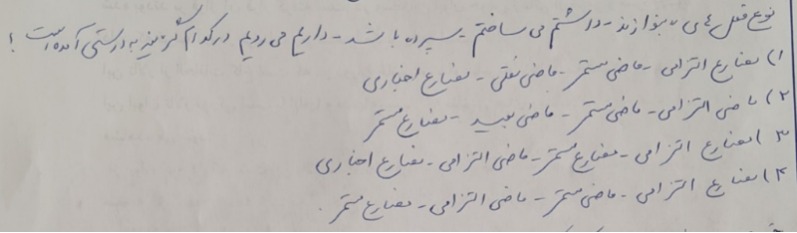 نوع فعل های « بنوازند - داشتم می ساختم - سپرده باشد - داریم می رویم در کدام گزینه به درستی آمده است ؟
۱) مضارع التزامی - ماضی مستمر - ماضی نقلی - مضارع اخباری
۲) ماضی التزامی - ماضی مستمر - ماضی بعید - مضارع مستمر
۳) مضارع التزامی - مضارع مستمر - ماضی التزامی - مضارع اخباری
۴) مضارع التزامی - ماضی مستمر - ماضی التزامی - مضارع مستمر .